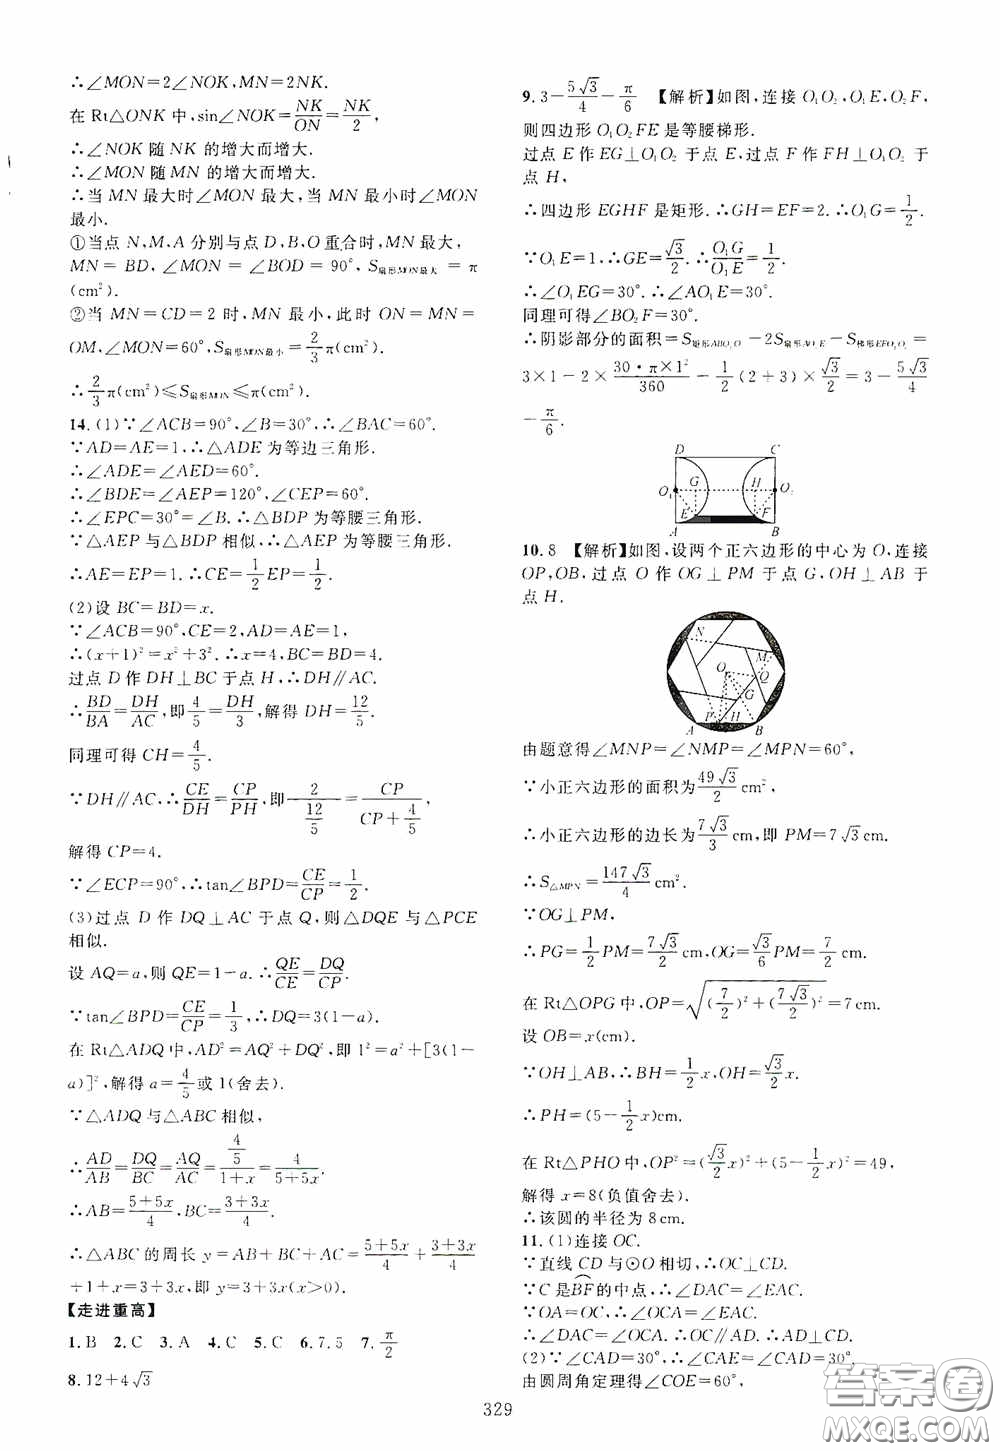 ∴∠MON=2∠NOK,MN=2NK.
在 Rt△ONK 中,sin∠NOK=NK/ON=NK/2,
∴∠NOK 随 NK 的增大而增大.
∴∠MON 随 MN 的增大而增大.
∴当 MN 最大时∠MON 最大,当 MN 最小时∠MON
最小.
①当点 N,M,A 分别与点 D,B,O 重合时,MN 最大,
MN=BD,∠MON=∠BOD=90°,S扇形MON最大=π
(cm²).
②当 MN=CD=2 时,MN 最小,此时 ON=MN=
OM,∠MON=60°,S扇形MON最小=2/3π(cm²).
∴2/3π(cm²)≤S扇形MON≤π(cm²).
14.(1)∵∠ACB=90°,∠B=30°,∴∠BAC=60°.
∵AD=AE=1,∴△ADE 为等边三角形.
∴∠ADE=∠AED=60°.
∴∠BDE=∠AEP=120°,∠CEP=60°.
∴∠EPC=30°=∠B.∴△BDP 为等腰三角形.
∵△AEP 与△BDP 相似,∴△AEP 为等腰三角形.
∴AE=EP=1.∴CE=1/2EP=1/2.
(2)设 BC=BD=x.
∵∠ACB=90°,CE=2,AD=AE=1,
∴(x+1)²=x²+3².∴x=4,BC=BD=4.
过点 D 作 DH⊥BC 于点 H,∴DH∥AC.
∴BD/BA=DH/AC,即4/5=DH/3,解得 DH=12/5.
同理可得 CH=4/5.
∵DH∥AC,∴CE/DH=CP/PH,即2/(12/5)=CP/(CP+4/5),
解得 CP=4.
∵∠ECP=90°,∴tan∠BPD=CE/CP=1/2
(3)过点 D 作 DQ⊥AC 于点 Q,则△DQE 与△PCE
相似.
设 AQ=a,则 QE=1-a.∴QE/CE=DQ/CP.
∵tan∠BPD=CE/CP=1/3,∴DQ=3(1-a).
在 Rt△ADQ 中,AD²=AQ²+DQ²,即 1²=a²+[3(1-
a)]²,解得 a=4/5或 1(舍去).
∵△ADQ 与△ABC 相似,
∴AD/AB=DQ/BC=AQ/AC=(4/5)/(1+x)=4/(5+5x).
∴AB=(5+5x)/4,BC=(3+3x)/4.
∴△ABC 的周长 y=AB+BC+AC=(5+5x)/4+(3+3x)/4
+1+x=3+3x,即 y=3+3x(x>0).
【走进重高】
1.B 2.C 3.A 4.C 5.C 6.7.5 7.π/2
8.12+4√3
9.3-5√3/4-π/6 【解析】如图,连接 O₁O₂,O₁E,O₂F,
则四边形 O₁O₂FE 是等腰梯形.
过点 E 作 EG⊥O₁O₂ 于点 E,过点 F 作 FH⊥O₁O₂ 于
点 H,
∴四边形 EGHF 是矩形.∴GH=EF=2.∴O₁G=1/2.
∵O₁E=1,∴GE=√3/2.∴O₁G/O₁E=1/2.
∴∠O₁EG=30°.∴∠AO₁E=30°.
同理可得∠BO₂F=30°.
∴阴影部分的面积=S矩形ABO₂O₁-2S扇形AO₁E-S梯形EFO₂O₁=
3×1-2×30·π×1²/360-1/2(2+3)×√3/2=3-5√3/4
-π/6.
D C
O₁ G H O₂
E F
A B
10.8 【解析】如图,设两个正六边形的中心为 O,连接
OP,OB,过点 O 作 OG⊥PM 于点 G,OH⊥AB 于
点 H.
N
M
O Q
G
P H
A B
由题意得∠MNP=∠NMP=∠MPN=60°,
∵小正六边形的面积为49√3/2cm²,
∴小正六边形的边长为7√3/3cm,即 PM=7√3cm.
∴S△MPN=147√3/4cm².
∵OG⊥PM,
∴PG=1/2PM=7√3/2cm,OG=√3/6PM=7/2cm.
在 Rt△OPG 中,OP=√((7/2)²+(7√3/2)²)=7cm.
设 OB=x(cm).
∵OH⊥AB,∴BH=1/2x,OH=√3/2x.
∴PH=(5-1/2x)cm.
在 Rt△PHO 中,OP²=(√3/2x)²+(5-1/2x)²=49,
解得 x=8(负值舍去).
∴该圆的半径为 8cm.
11.(1)连接 OC.
∵直线 CD 与⊙O 相切,∴OC⊥CD.
∵C 是B͡F的中点,∴∠DAC=∠EAC.
∵OA=OC,∴∠OCA=∠EAC.
∴∠DAC=∠OCA.∴OC∥AD.∴AD⊥CD.
(2)∵∠CAD=30°,∴∠CAE=∠CAD=30°.
由圆周角定理得∠COE=60°,
329
答案圈
MXQE.COM